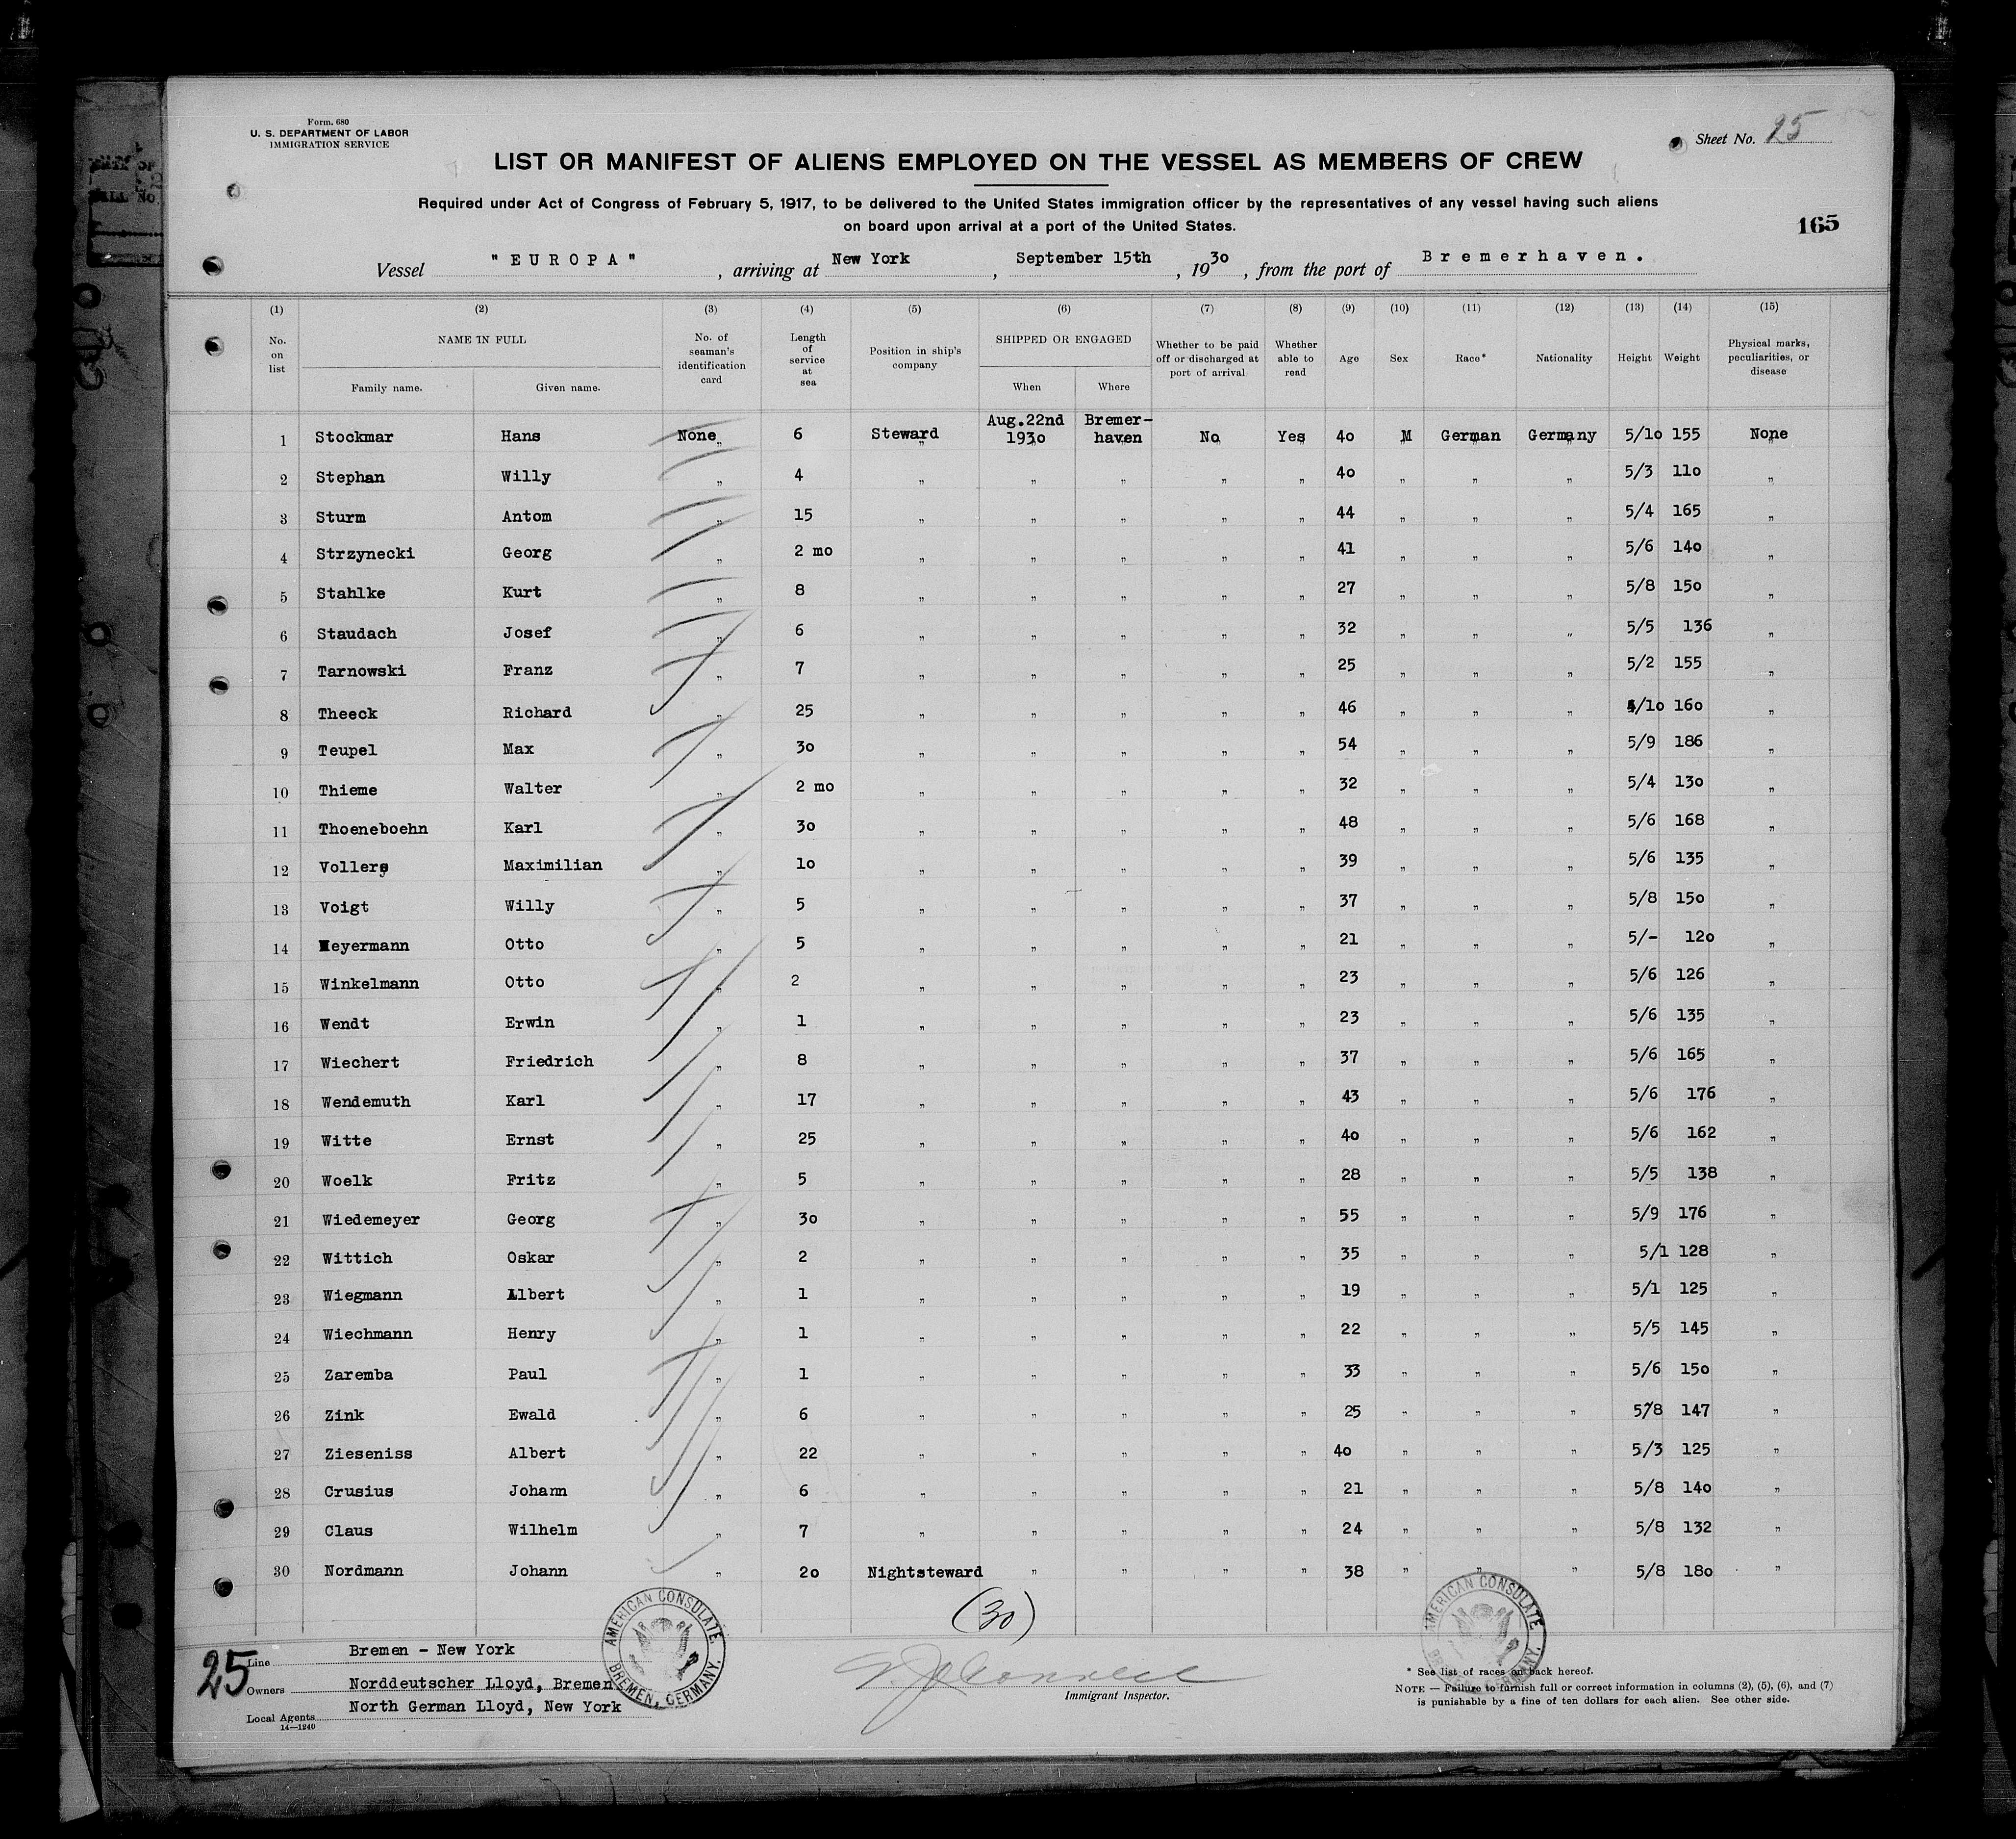 Form. 680
U. S. DEPARTMENT OF LABOR
IMMIGRATION SERVICE
Sheet No. 25
LIST OR MANIFEST OF ALIENS EMPLOYED ON THE VESSEL AS MEMBERS OF CREW
Required under Act of Congress of February 5, 1917, to be delivered to the United States immigration officer by the representatives of any vessel having such aliens
on board upon arrival at a port of the United States.
165
Vessel "EUROPA", arriving at New York, September 15th, 1930, from the port of Bremerhaven.
(1) (2) (3) (4) (5) (6) (7) (8) (9) (10) (11) (12) (13) (14) (15)
No. on list
NAME IN FULL
Family name. Given name.
No. of seaman's identification card
Length of service at sea
Position in ship's company
SHIPPED OR ENGAGED
When Where
Whether to be paid off or discharged at port of arrival
Whether able to read
Age
Sex
Race*
Nationality
Height
Weight
Physical marks, peculiarities, or disease
1 Stockmar Hans None 6 Steward Aug.22nd 1930 Bremer-haven No Yes 40 M German Germany 5/10 155 None
2 Stephan Willy " 4 " " " " " 40 " " " 5/3 110 "
3 Sturm Antom " 15 " " " " " 44 " " " 5/4 165 "
4 Strzynecki Georg " 2 mo " " " " " 41 " " " 5/6 140 "
5 Stahlke Kurt " 8 " " " " " 27 " " " 5/8 150 "
6 Staudach Josef " 6 " " " " " 32 " " " 5/5 136 "
7 Tarnowski Franz " 7 " " " " " 25 " " " 5/2 155 "
8 Theeck Richard " 25 " " " " " 46 " " " 4/10 160 "
9 Teupel Max " 30 " " " " " 54 " " " 5/9 186 "
10 Thieme Walter " 2 mo " " " " " 32 " " " 5/4 130 "
11 Thoeneboehn Karl " 30 " " " " " 48 " " " 5/6 168 "
12 Vollers Maximilian " 10 " " " " " 39 " " " 5/6 135 "
13 Voigt Willy " 5 " " " " " 37 " " " 5/8 150 "
14 Weyermann Otto " 5 " " " " " 21 " " " 5/- 120 "
15 Winkelmann Otto " 2 " " " " " 23 " " " 5/6 126 "
16 Wendt Erwin " 1 " " " " " 23 " " " 5/6 135 "
17 Wiechert Friedrich " 8 " " " " " 37 " " " 5/6 165 "
18 Wendemuth Karl " 17 " " " " " 43 " " " 5/6 176 "
19 Witte Ernst " 25 " " " " " 40 " " " 5/6 162 "
20 Woelk Fritz " 5 " " " " " 28 " " " 5/5 138 "
21 Wiedemeyer Georg " 30 " " " " " 55 " " " 5/9 176 "
22 Wittich Oskar " 2 " " " " " 35 " " " 5/1 128 "
23 Wiegmann Albert " 1 " " " " " 19 " " " 5/1 125 "
24 Wiechmann Henry " 1 " " " " " 22 " " " 5/5 145 "
25 Zaremba Paul " 1 " " " " " 33 " " " 5/6 150 "
26 Zink Ewald " 6 " " " " " 25 " " " 5/8 147 "
27 Zieseniss Albert " 22 " " " " " 40 " " " 5/3 125 "
28 Crusius Johann " 6 " " " " " 21 " " " 5/8 140 "
29 Claus Wilhelm " 7 " " " " " 24 " " " 5/8 132 "
30 Nordmann Johann " 20 Nightsteward " " " " 38 " " " 5/8 180 "
(30)
AMERICAN CONSULATE. BREMEN, GERMANY.
AMERICAN CONSULATE. BREMEN, GERMANY.
25
Line Bremen - New York
Owners Norddeutscher Lloyd, Bremen
Local Agents North German Lloyd, New York
14—1240
Immigrant Inspector.
* See list of races on back hereof.
NOTE — Failure to furnish full or correct information in columns (2), (5), (6), and (7)
is punishable by a fine of ten dollars for each alien. See other side.